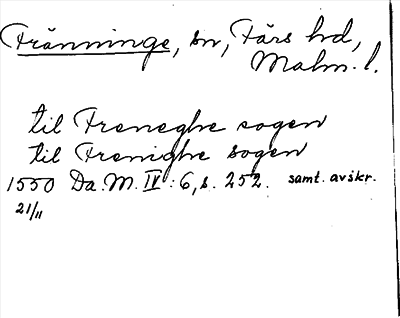 Fränninge, sn, Färs hd,
Malm. l.
til Freneghe sogen
til Frenighe sogen
1550 Da. M. IV: 6, s. 252. samt. avskr.
21/11